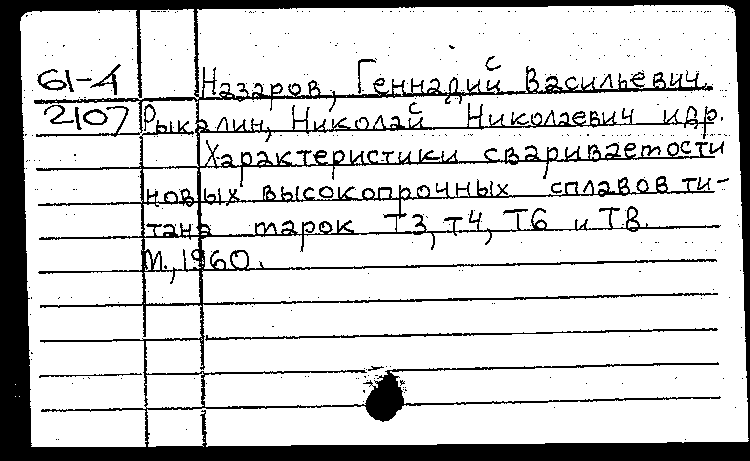 61-4 Назаров, Геннадий Васильевич.
2107 Рыкалин, Николай Николаевич и др.
Характеристики свариваемости
новых высокопрочных сплавов ти-
тана марок Т3, т4, Т6 и Т8.
М., 1960.